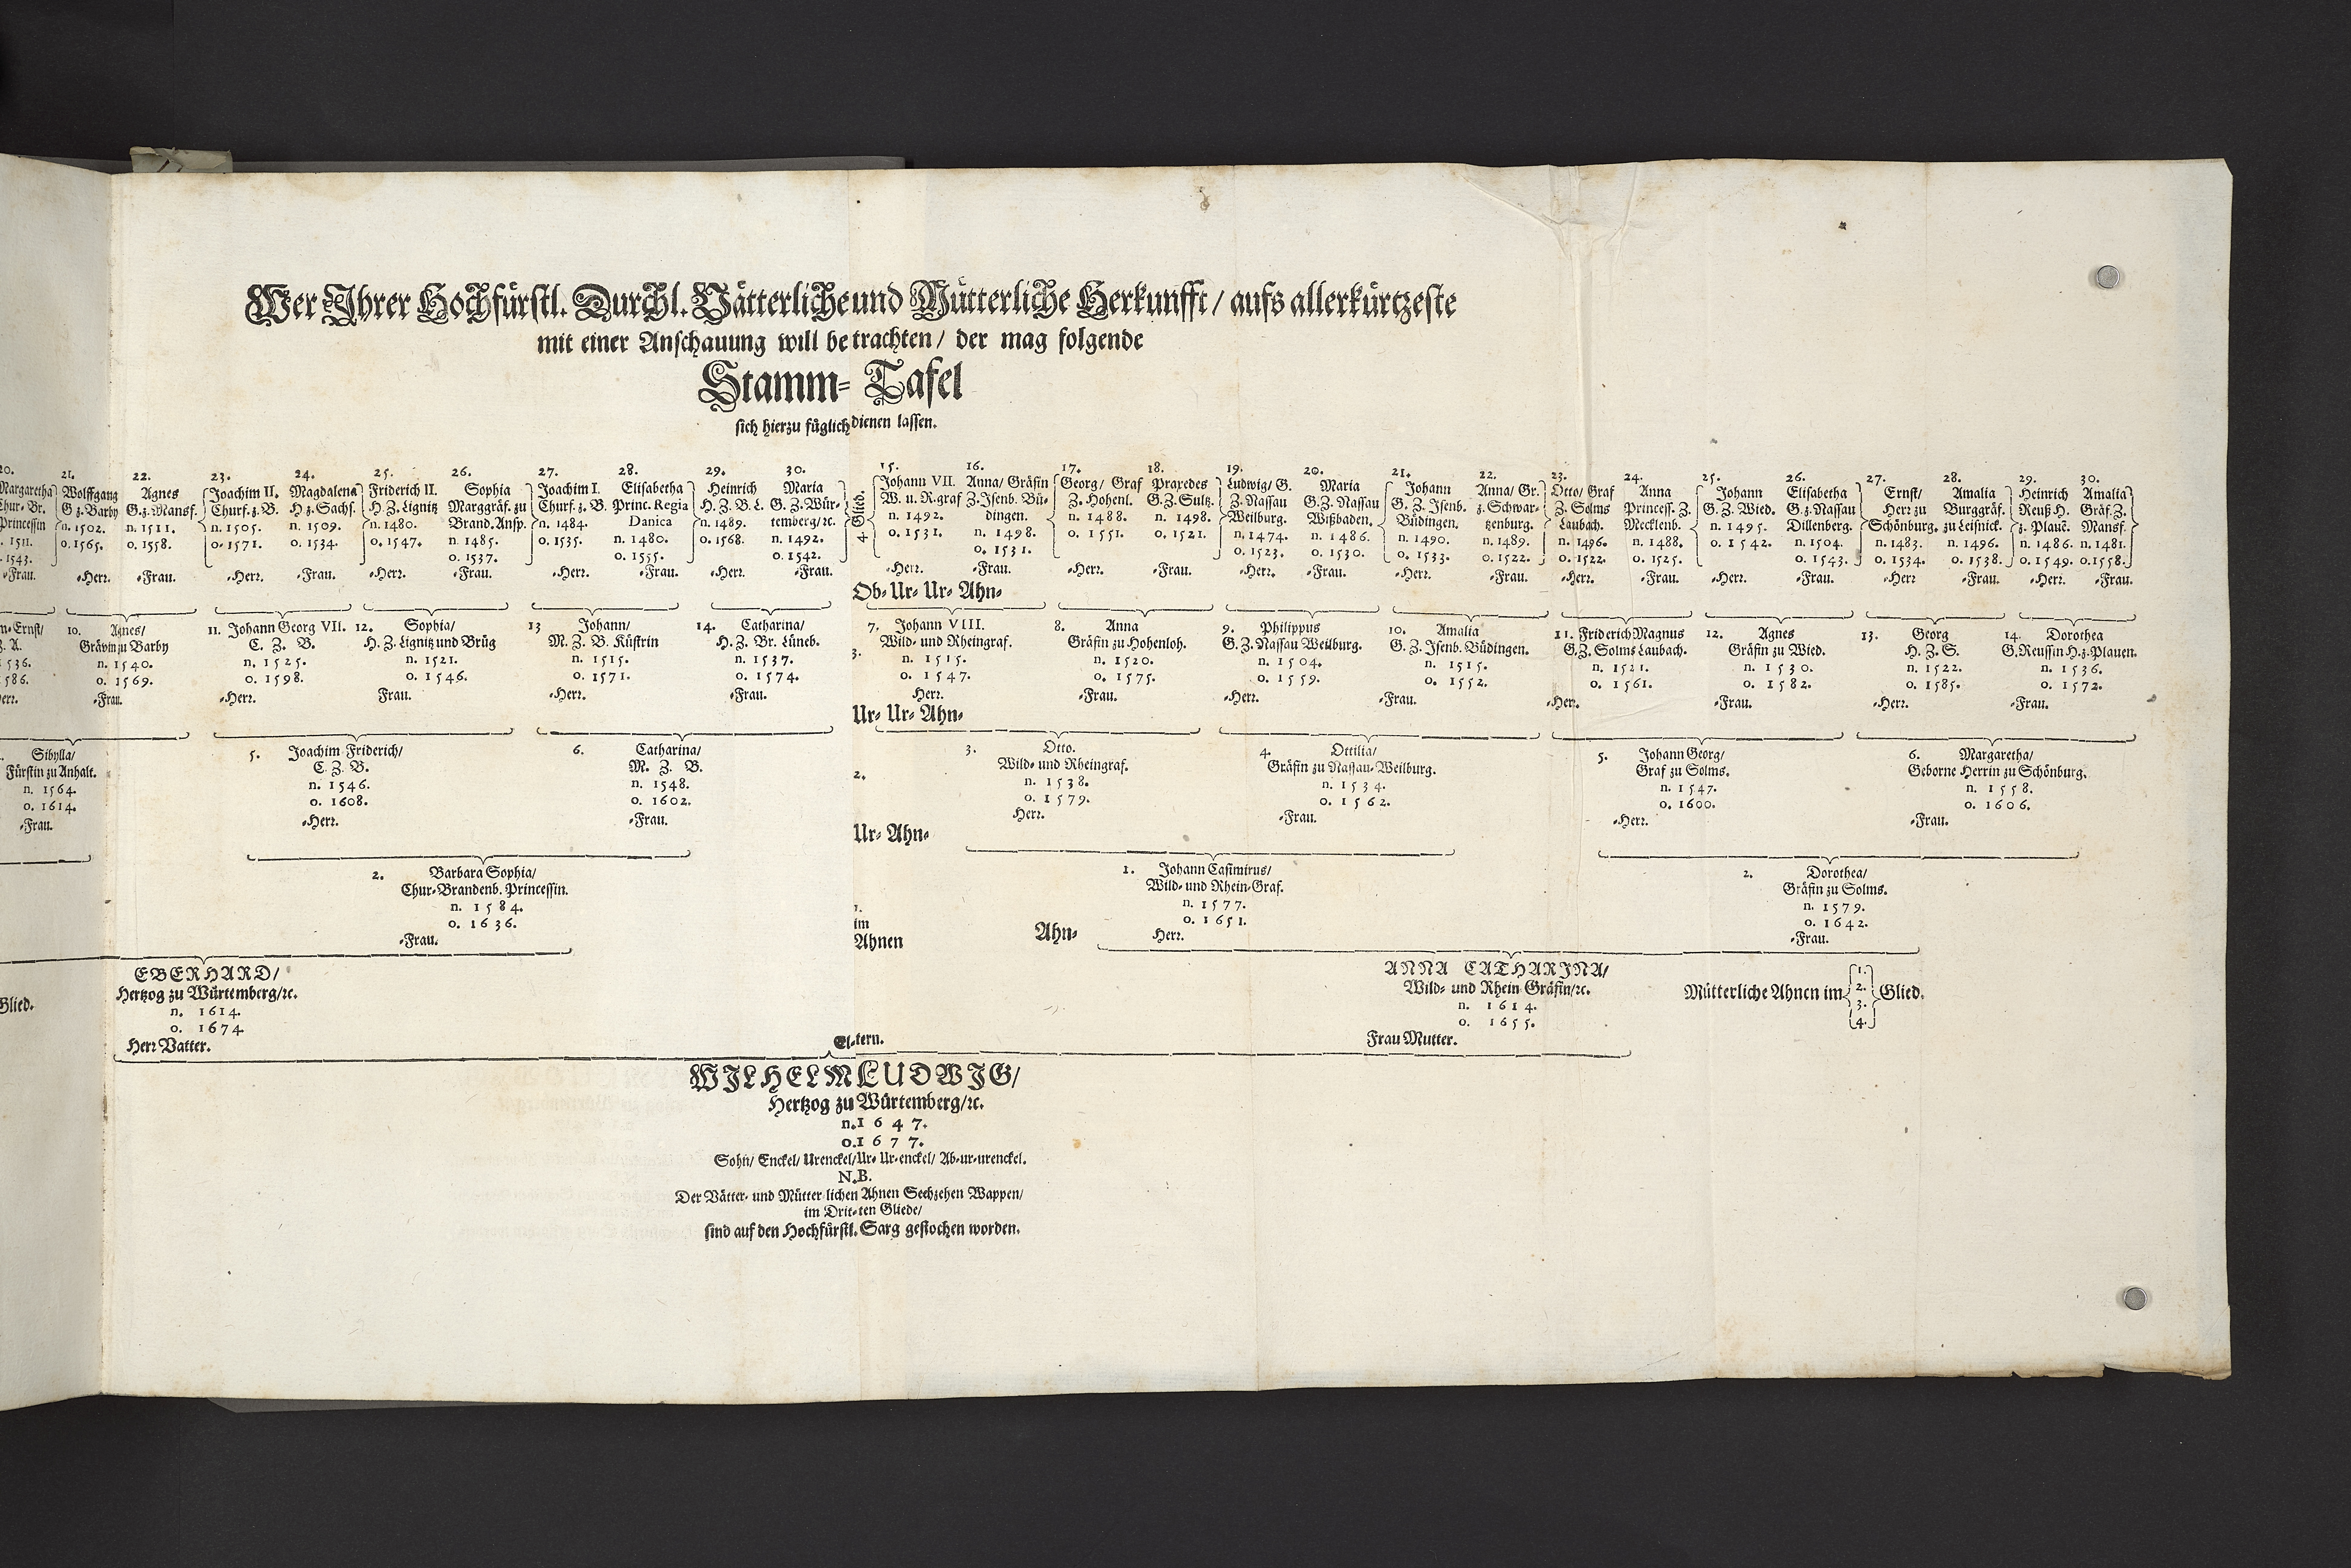 Wer Ihrer Hochfürstl. Durchl. Vätterliche und Mütterliche Herkunfft / aufs allerkürtzeste
mit einer Anschauung will betrachten / der mag folgende
Stamm- Tafel
sich hierzu füglich dienen lassen.
20.
Margaretha
Chur-Br.
Princessin
. 1511.
. 1543.
-Frau.
21.
Wolffgang
G z. Barby
n. 1502.
o. 1565.
-Herr.
22.
Agnes
G. z. Mansf.
n. 1511.
o. 1558.
-Frau.
23.
Joachim II.
Churf. z. B.
n. 1505.
o. 1571.
-Herr.
24.
Magdalena
H z. Sachs.
n. 1509.
o. 1534.
-Frau.
25.
Friderich II.
H. Z. Lignitz
n. 1480.
o. 1547.
-Herr.
26.
Sophia
Marggräf. zu
Brand. Ansp.
n. 1485.
o. 1537.
-Frau.
27.
Joachim I.
Churf. z. B.
n. 1484.
o. 1535.
-Herr.
28.
Elisabetha
Princ. Regia
Danica
n. 1480.
o. 1555.
-Frau.
29.
Heinrich
H. Z. B. L.
n. 1489.
o. 1568.
-Herr.
30.
Maria
G. Z. Wür-
temberg/ ꝛc.
n. 1492.
o. 1542.
-Frau.
4. Glied.
15.
Johann VII.
W. u. R. graf
n. 1492.
o. 1531.
-Herr.
16.
Anna/ Gräfin
Z. Isenb. Bü-
dingen.
n. 1498.
o. 1531.
-Frau.
17.
Georg/ Graf
Z. Hohenl.
n. 1488.
o. 1551.
-Herr.
18.
Praxedes
G. Z. Sultz.
n. 1498.
o. 1521.
-Frau.
19.
Ludwig/ G.
Z. Nassau
Weilburg.
n. 1474.
o. 1523.
-Herr.
20.
Maria
G. Z. Nassau
Wißbaden.
n. 1486.
o. 1530.
-Frau.
21.
Johann
G. Z. Isenb.
Büdingen.
n. 1490.
o. 1533.
-Herr.
22.
Anna/ Gr.
z. Schwar-
tzenburg.
n. 1489.
o. 1522.
-Frau.
23.
Otto/ Graf
Z. Solms
Laubach.
n. 1496.
o. 1522.
-Herr.
24.
Anna
Princess. Z.
Mecklenb.
n. 1488.
o. 1525.
-Frau.
25.
Johann
G. Z. Wied.
n. 1495.
o. 1542.
-Herr.
26.
Elisabetha
G. z. Nassau
Dillenberg.
n. 1504.
o. 1543.
-Frau.
27.
Ernst/
Herr zu
Schönburg.
n. 1483.
o. 1534.
-Herr
28.
Amalia
Burggräf.
zu Leisnick.
n. 1496.
o. 1538.
-Frau.
29.
Heinrich
Reuß H.
z. Plauē.
n. 1486.
o. 1549.
-Herr.
30.
Amalia
Gräf. Z.
Mansf.
n. 1481.
o. 1558.
-Frau.
Ob- Ur- Ur- Ahn-
n-Ernst/
Z. A.
1536.
1586.
-Herr.
10. Agnes/
Grävin zu Barby
n. 1540.
o. 1569.
-Frau.
11. Johann Georg VII.
C. Z. B.
n. 1525.
o. 1598.
-Herr.
12. Sophia/
H. Z. Lignitz und Brüg
n. 1521.
o. 1546.
Frau.
13 Johann/
M. Z. B. Küstrin
n. 1515.
o. 1571.
-Herr.
14. Catharina/
H. Z. Br. Lüneb.
n. 1537.
o. 1574.
-Frau.
3.
7. Johann VIII.
Wild- und Rheingraf.
n. 1515.
o. 1547.
-Herr.
8. Anna
Gräfin zu Hohenloh.
n. 1520.
o. 1575.
-Frau.
9. Philippus
G. Z. Nassau Weilburg.
n. 1504.
o. 1559.
-Herr.
10. Amalia
G. Z. Isenb. Büdingen.
n. 1515.
o. 1552.
-Frau.
11. Friderich Magnus
G. Z. Solms Laubach.
n. 1521.
o. 1561.
-Herr.
12. Agnes
Gräfin zu Wied.
n. 1530.
o. 1582.
-Frau.
13. Georg
H. Z. S.
n. 1522.
o. 1585.
-Herr.
14. Dorothea
G. Reussin H. z. Plauen.
n. 1536.
o. 1572.
-Frau.
Ur- Ur- Ahn-
. Sibylla/
Fürstin zu Anhalt.
n. 1564.
o. 1614.
-Frau.
5. Joachim Friderich/
C. Z. B.
n. 1546.
o. 1608.
-Herr.
6. Catharina/
M. Z. B.
n. 1548.
o. 1602.
-Frau.
2.
3. Otto.
Wild- und Rheingraf.
n. 1538.
o. 1579.
Herr.
4. Ottilia/
Gräfin zu Nassau-Weilburg.
n. 1534.
o. 1562.
-Frau.
5. Johann Georg/
Graf zu Solms.
n. 1547.
o. 1600.
-Herr.
6. Margaretha/
Geborne Herrin zu Schönburg.
n. 1558.
o. 1606.
-Frau.
Ur- Ahn-
2. Barbara Sophia/
Chur-Brandenb. Princessin.
n. 1584.
o. 1636.
-Frau.
1.
im
Ahnen
Ahn-
1. Johann Casimirus/
Wild- und Rhein-Graf.
n. 1577.
o. 1651.
Herr.
2. Dorothea/
Gräfin zu Solms.
n. 1579.
o. 1642.
-Frau.
Glied.
EBERHARD/
Hertzog zu Würtemberg/ꝛc.
n. 1614.
o. 1674.
Herr Vatter.
ANNA CATHARINA/
Wild- und Rhein Gräfin/ꝛc.
n. 1614.
o. 1655.
Frau Mutter.
Mütterliche Ahnen im 1. 2. 3. 4. Glied.
El-tern.
WILHELM LUDWIG/
Hertzog zu Würtemberg/ꝛc.
n. 1647.
o. 1677.
Sohn/ Enckel/ Urenckel/ Ur- Ur-enckel/ Ab-ur-urenckel.
N.B.
Der Vätter- und Mütterlichen Ahnen Sechzehen Wappen/
im Drit-ten Gliede/
sind auf den Hochfürstl. Sarg gestochen worden.